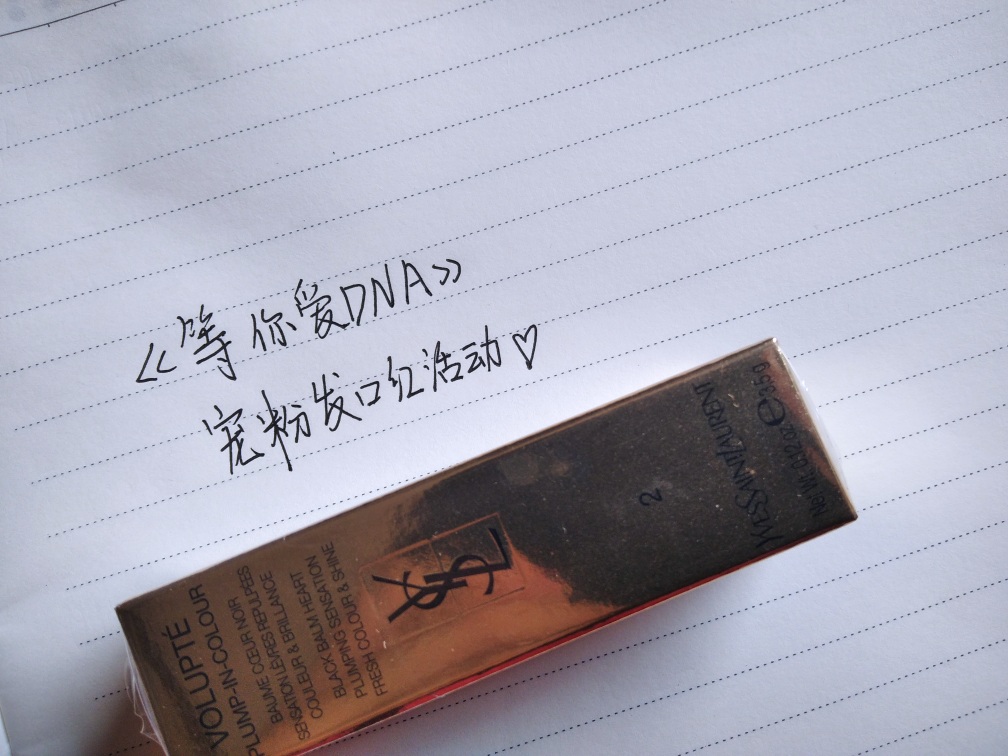 《等你爱DNA》
宠粉发口红活动♡
VOLUPTÉ
PLUMP-IN-COLOUR
BAUME CŒUR NOIR
SENSATION LÈVRES REPULPÉES
COULEUR & BRILLANCE
BLACK BALM HEART
PLUMPING SENSATION
FRESH COLOUR & SHINE
YSL
2
YVESSAINTLAURENT
Net Wt. 0.12 oz e 3.5 g